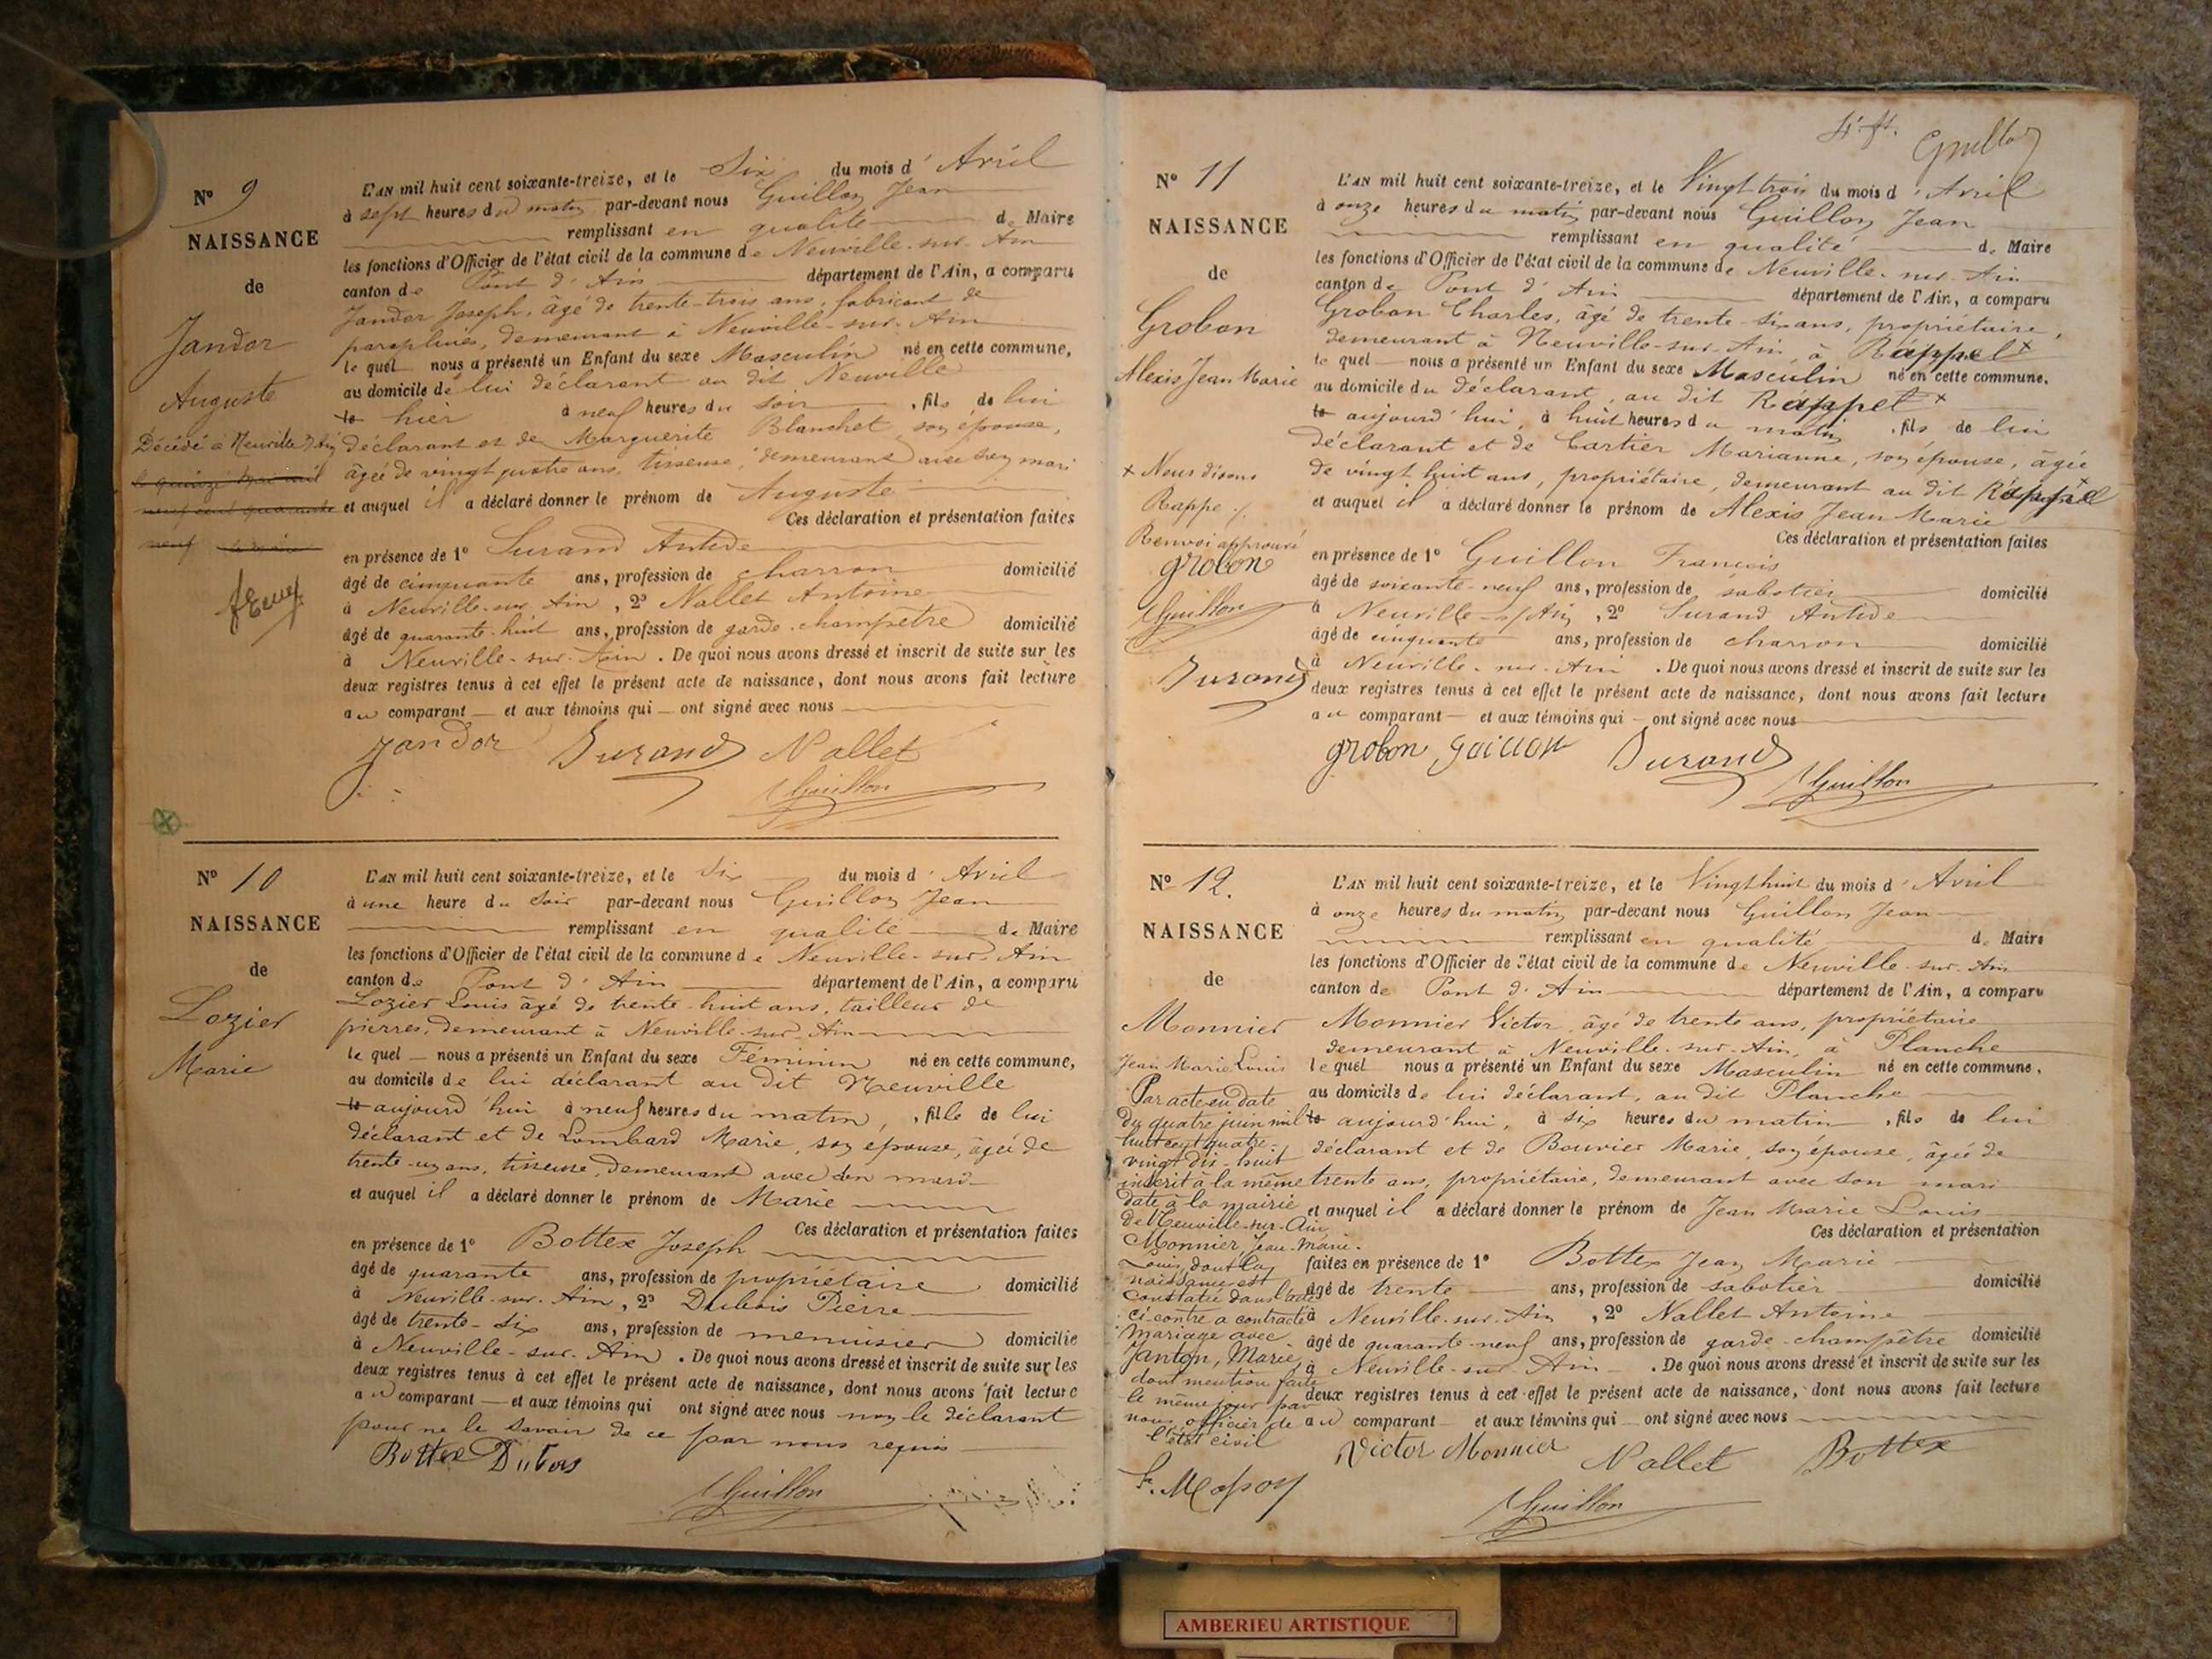 Nº 9
NAISSANCE
de
Jandor
Auguste
Décédé à Neuville s/Ain
le quinze mai mil
neuf cent quarante
neuf
L'AN mil huit cent soixante-treize, et le Six du mois d'Avril
à sept heures du matin par-devant nous Guillon Jean
remplissant en qualité de Maire
les fonctions d'Officier de l'état civil de la commune de Neuville-sur-Ain
canton de Pont d'Ain département de l'Ain, a comparu
Jandor Joseph, âgé de trente-trois ans, fabricant de
parapluies, demeurant à Neuville-sur-Ain
le quel nous a présenté un Enfant du sexe Masculin né en cette commune,
au domicile de lui déclarant au dit Neuville
le hier à neuf heures du soir, fils de lui
déclarant et de Marguerite Blanchet son épouse,
âgée de vingt quatre ans, tisseuse, demeurant avec son mari
et auquel il a déclaré donner le prénom de Auguste
Ces déclaration et présentation faites
en présence de 1º Durand Antide
âgé de cinquante ans, profession de charron domicilié
à Neuville-sur-Ain, 2º Nallet Antoine
âgé de quarante-huit ans, profession de garde-champêtre domicilié
à Neuville-sur-Ain. De quoi nous avons dressé et inscrit de suite sur les
deux registres tenus à cet effet le présent acte de naissance, dont nous avons fait lecture
au comparant et aux témoins qui ont signé avec nous
Jandor Durand Nallet
Guillon
Nº 10
NAISSANCE
de
Lozier
Marie
L'AN mil huit cent soixante-treize, et le Six du mois d'Avril
à une heure du Soir par-devant nous Guillon Jean
remplissant en qualité de Maire
les fonctions d'Officier de l'état civil de la commune de Neuville-sur-Ain
canton de Pont d'Ain département de l'Ain, a comparu
Lozier Louis âgé de trente-huit ans, tailleur de
pierres, demeurant à Neuville-sur-Ain
le quel nous a présenté un Enfant du sexe Féminin né en cette commune,
au domicile de lui déclarant au dit Neuville
le aujourd'hui à neuf heures du matin, fille de lui
déclarant et de Lombard Marie, son épouse, âgée de
trente-un ans, tisseuse, demeurant avec son mari
et auquel il a déclaré donner le prénom de Marie
Ces déclaration et présentation faites
en présence de 1º Bottex Joseph
âgé de quarante ans, profession de propriétaire domicilié
à Neuville-sur-Ain, 2º Dubois Pierre
âgé de trente-six ans, profession de menuisier domicilié
à Neuville-sur-Ain. De quoi nous avons dressé et inscrit de suite sur les
deux registres tenus à cet effet le présent acte de naissance, dont nous avons fait lecture
au comparant et aux témoins qui ont signé avec nous non le déclarant
pour ne le savoir de ce par nous requis
Bottex Dubois
Guillon
Guillon
Nº 11
NAISSANCE
de
Grobon
Alexis Jean Marie
+ Nous disons
Rappe
Renvoi approuvé
grobon
Guillon
Durand
L'AN mil huit cent soixante-treize, et le Vingt trois du mois d'Avril
à onze heures du matin par-devant nous Guillon Jean
remplissant en qualité de Maire
les fonctions d'Officier de l'état civil de la commune de Neuville-sur-Ain
canton de Pont d'Ain département de l'Ain, a comparu
Grobon Charles, âgé de trente-six ans, propriétaire,
demeurant à Neuville-sur-Ain, à Rappel +
le quel nous a présenté un Enfant du sexe Masculin né en cette commune.
au domicile du déclarant, au dit Rappel +
le aujourd'hui, à huit heures du matin, fils de lui
déclarant et de Cartier Marianne, son épouse, âgée
de vingt huit ans, propriétaire, demeurant au dit Rappel +
et auquel il a déclaré donner le prénom de Alexis Jean Marie
Ces déclaration et présentation faites
en présence de 1º Guillon François
âgé de soixante-neuf ans, profession de sabotier domicilié
à Neuville-s/Ain, 2º Durand Antide
âgé de cinquante ans, profession de charron domicilié
à Neuville-sur-Ain. De quoi nous avons dressé et inscrit de suite sur les
deux registres tenus à cet effet le présent acte de naissance, dont nous avons fait lecture
au comparant et aux témoins qui ont signé avec nous
grobon guillon Durand
Guillon
Nº 12.
NAISSANCE
de
Monnier
Jean Marie Louis
Par acte en date
du quatre juin mil
huit cent quatre-
vingt dix-huit
inscrit à la même
date à la mairie
de Neuville-sur-Ain
Monnier, Jean-Marie-
Louis, dont la
naissance est
constatée dans l'acte
ci-contre a contracté
mariage avec
Janton, Marie,
dont mention faite
le même jour par
nous, officier de
l'état civil
L'AN mil huit cent soixante-treize, et le Vingt huit du mois d'Avril
à onze heures du matin par-devant nous Guillon Jean
remplissant en qualité de Maire
les fonctions d'Officier de l'état civil de la commune de Neuville-sur-Ain
canton de Pont d'Ain département de l'Ain, a comparu
Monnier Victor, âgé de trente ans, propriétaire
demeurant à Neuville-sur-Ain, à Planche
lequel nous a présenté un Enfant du sexe Masculin né en cette commune.
au domicile de lui déclarant, au dit Planche
le aujourd'hui, à six heures du matin, fils de lui
déclarant et de Bouvier Marie, son épouse, âgée de
trente ans, propriétaire, demeurant avec son mari
et auquel il a déclaré donner le prénom de Jean Marie Louis
Ces déclaration et présentation
faites en présence de 1º Bottex Jean Marie
âgé de trente ans, profession de sabotier domicilié
à Neuville-sur-Ain, 2º Nallet Antoine
âgé de quarante-neuf ans, profession de garde-champêtre domicilié
à Neuville-sur-Ain. De quoi nous avons dressé et inscrit de suite sur les
deux registres tenus à cet effet le présent acte de naissance, dont nous avons fait lecture
au comparant et aux témoins qui ont signé avec nous
Victor Monnier Nallet Bottex
Guillon
AMBERIEU ARTISTIQUE